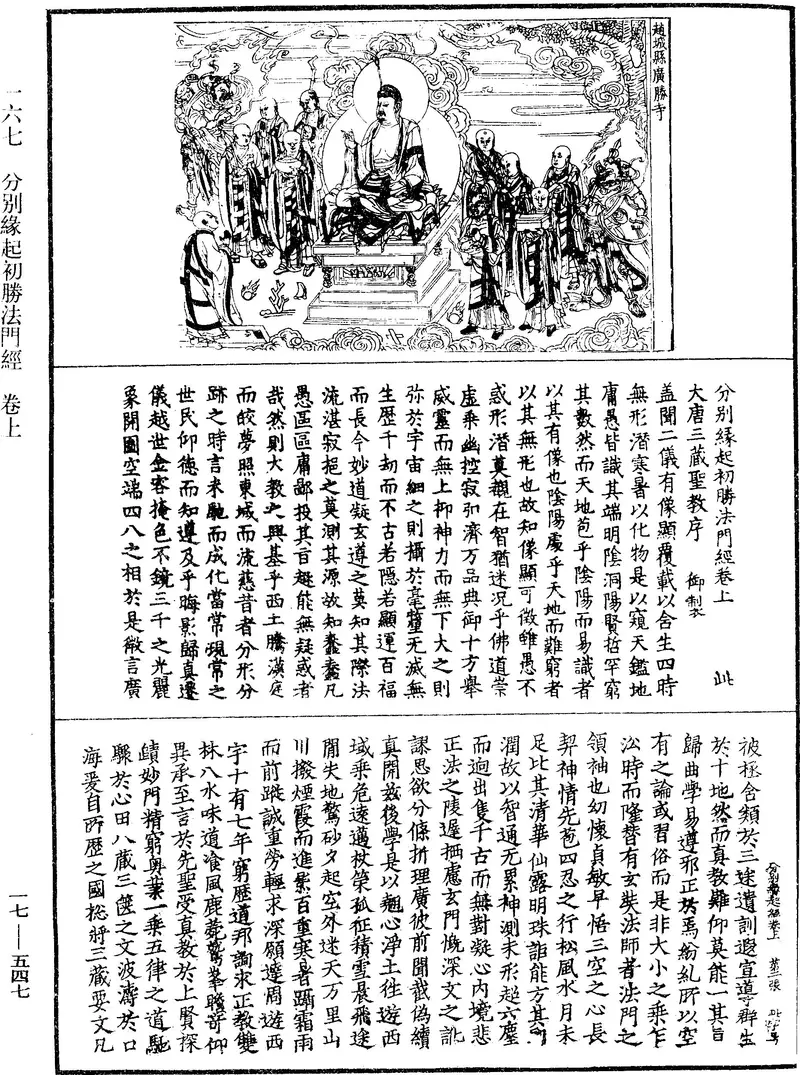 趙城縣廣勝寺
分別緣起初勝法門經卷上 此
大唐三藏聖教序 御製
蓋聞二儀有像顯覆載以含生四時
無形潛寒暑以化物是以窺天鑑地
庸愚皆識其端明陰洞陽賢哲罕窮
其數然而天地苞乎陰陽而易識者
以其有像也陰陽處乎天地而難窮者
以其無形也故知像顯可徵雖愚不
惑形潛莫覩在智猶迷況乎佛道崇
虛乘幽控寂弘濟万品典御十方舉
威靈而無上抑神力而無下大之則
弥於宇宙細之則攝於毫釐无滅無
生歷千劫而不古若隱若顯運百福
而長今妙道凝玄遵之莫知其際法
流湛寂挹之莫測其源故知蠢蠢凡
愚區區庸鄙投其旨趣能無疑惑者
哉然則大教之興基乎西土騰漢庭
而皎夢照東域而流慈昔者分形分
跡之時言未馳而成化當常現常之
世民仰德而知遵及乎晦影歸真遷
儀越世金容掩色不鏡三千之光麗
象開圖空端四八之相於是微言廣
分別緣起經卷上 第二張 此字号
被拯含類於三途遺訓遐宣導群生
於十地然而真教難仰莫能一其旨
歸曲學易遵邪正於焉紛糺所以空
有之論或習俗而是非大小之乘乍
㳂時而隆替有玄奘法師者法門之
領袖也幼懷貞敏早悟三空之心長
契神情先苞四忍之行松風水月未
足比其清華仙露明珠詎能方其朗
潤故以智通无累神測未形超六塵
而迥出隻千古而無對凝心內境悲
正法之陵遲栖慮玄門慨深文之訛
謬思欲分條析理廣彼前聞截偽續
真開茲後學是以翹心淨土往遊西
域乘危遠邁杖策孤征積雪晨飛途
閒失地驚砂夕起空外迷天万里山
川撥煙霞而進影百重寒暑躡霜雨
而前蹤誠重勞輕求深願達周遊西
宇十有七年窮歷道邦詢求正教雙
林八水味道飡風鹿苑鷲峯瞻奇仰
異承至言於先聖受真教於上賢探
賾妙門精窮奧業一乘五律之道馳
驟於心田八藏三篋之文波濤於口
海爰自所歷之國捴將三藏要文凡
一六七 分別緣起初勝法門經 卷上
一七—五四七